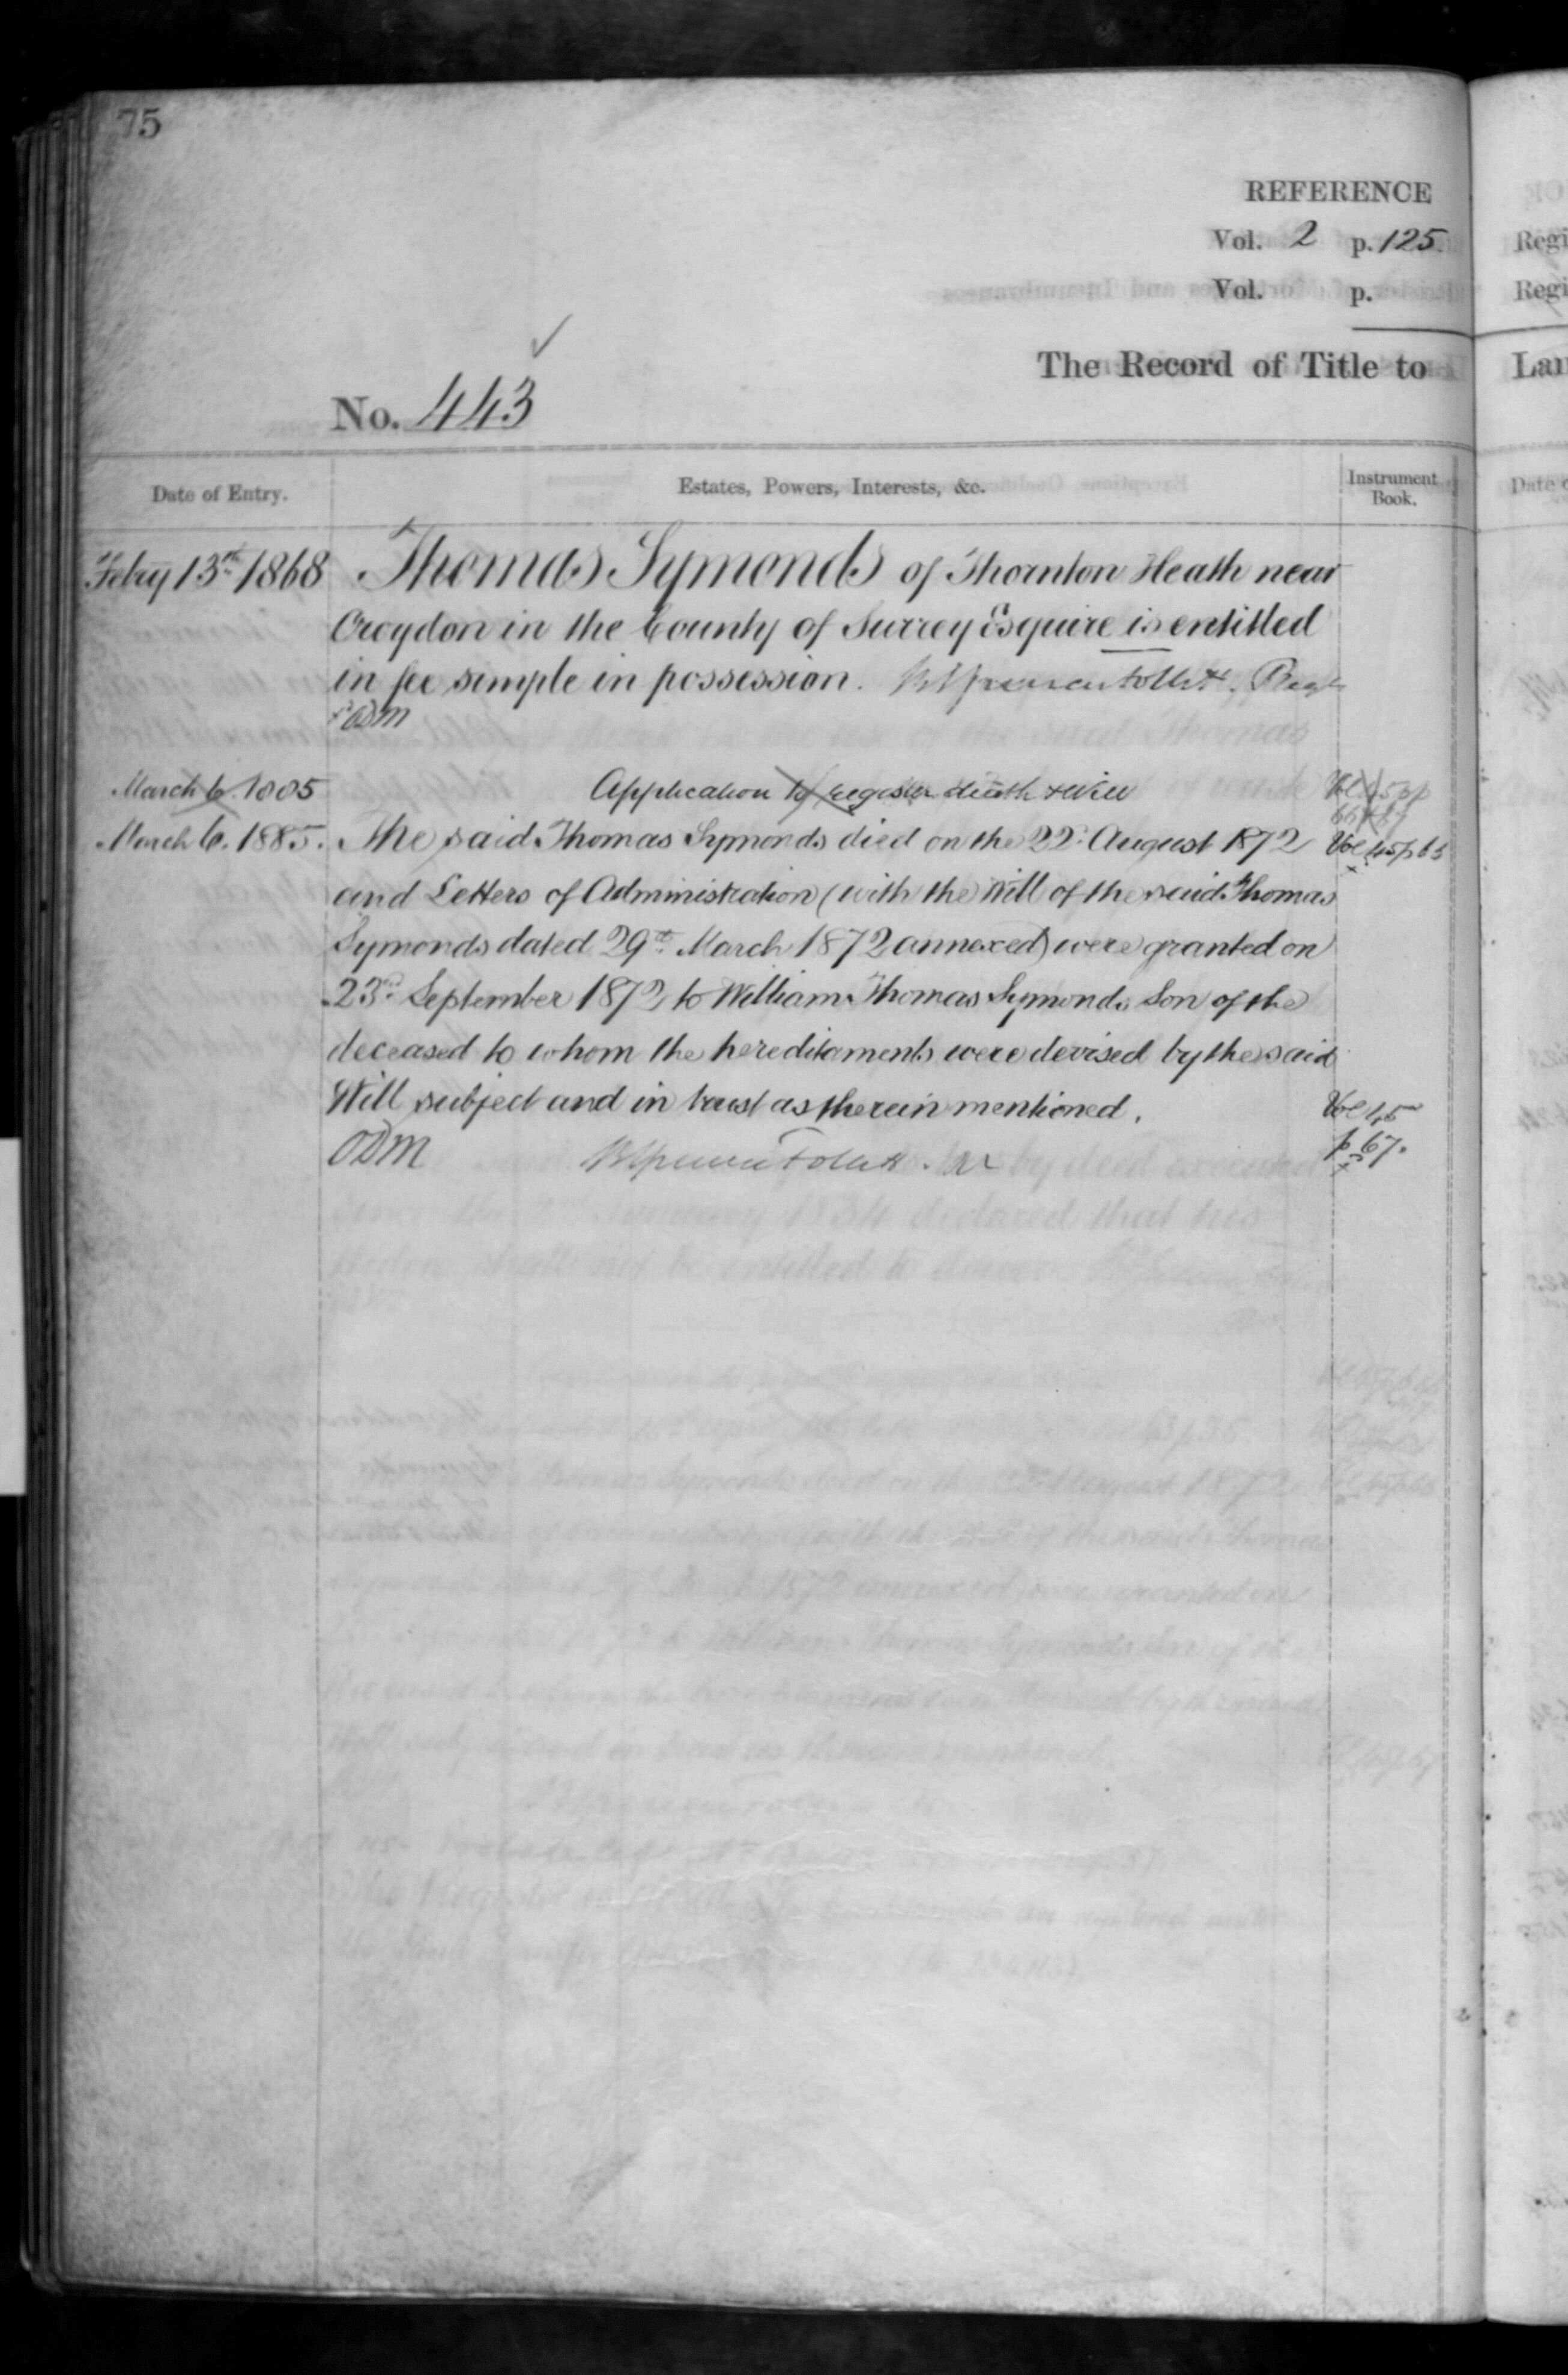 75
REFERENCE
Vol. 2 p. 125.
Vol. p.
The Record of Title to
No. 443
Date of Entry.
Estates, Powers, Interests, &c.
Instrument Book.
Febry 13th 1868 Thomas Symonds of Thornton Heath near
Croydon in the County of Surrey Esquire is entitled
in fee simple in possession. Brent Spencer Follett. Regr
ODM
March 6. 1885 Application to register death & Will Vol 45 pp
66 & 67
March 6. 1885. The said Thomas Symonds died on the 22d August 1872 Vol 45 p 63
and Letters of Administration (with the Will of the said Thomas
Symonds dated 29th March 1872 annexed) were granted on
23rd September 1872 to William Thomas Symonds Son of the
deceased to whom the hereditaments were devised by the said
Will subject and in trust as therein mentioned. Vol 45
ODM Follett p 67.
Regi
Regi
Lan
Date o